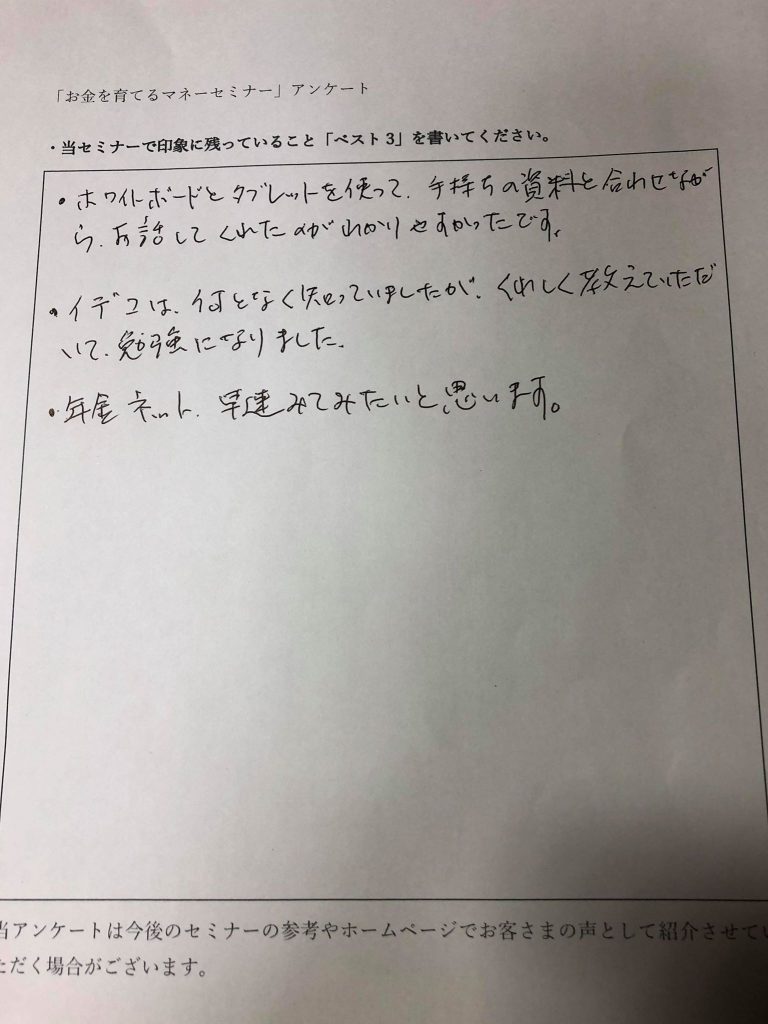 「お金を育てるマネーセミナー」アンケート
・当セミナーで印象に残っていること「ベスト3」を書いてください。
・ホワイトボードとタブレットを使って、手持ちの資料と合わせなが
ら、お話してくれたのがわかりやすかったです。
・イデコは、何となく知っていましたが、くわしく教えていただ
いて、勉強になりました。
・年金ネット、早速みてみたいと思います。
当アンケートは今後のセミナーの参考やホームページでお客さまの声として紹介させてい
ただく場合がございます。